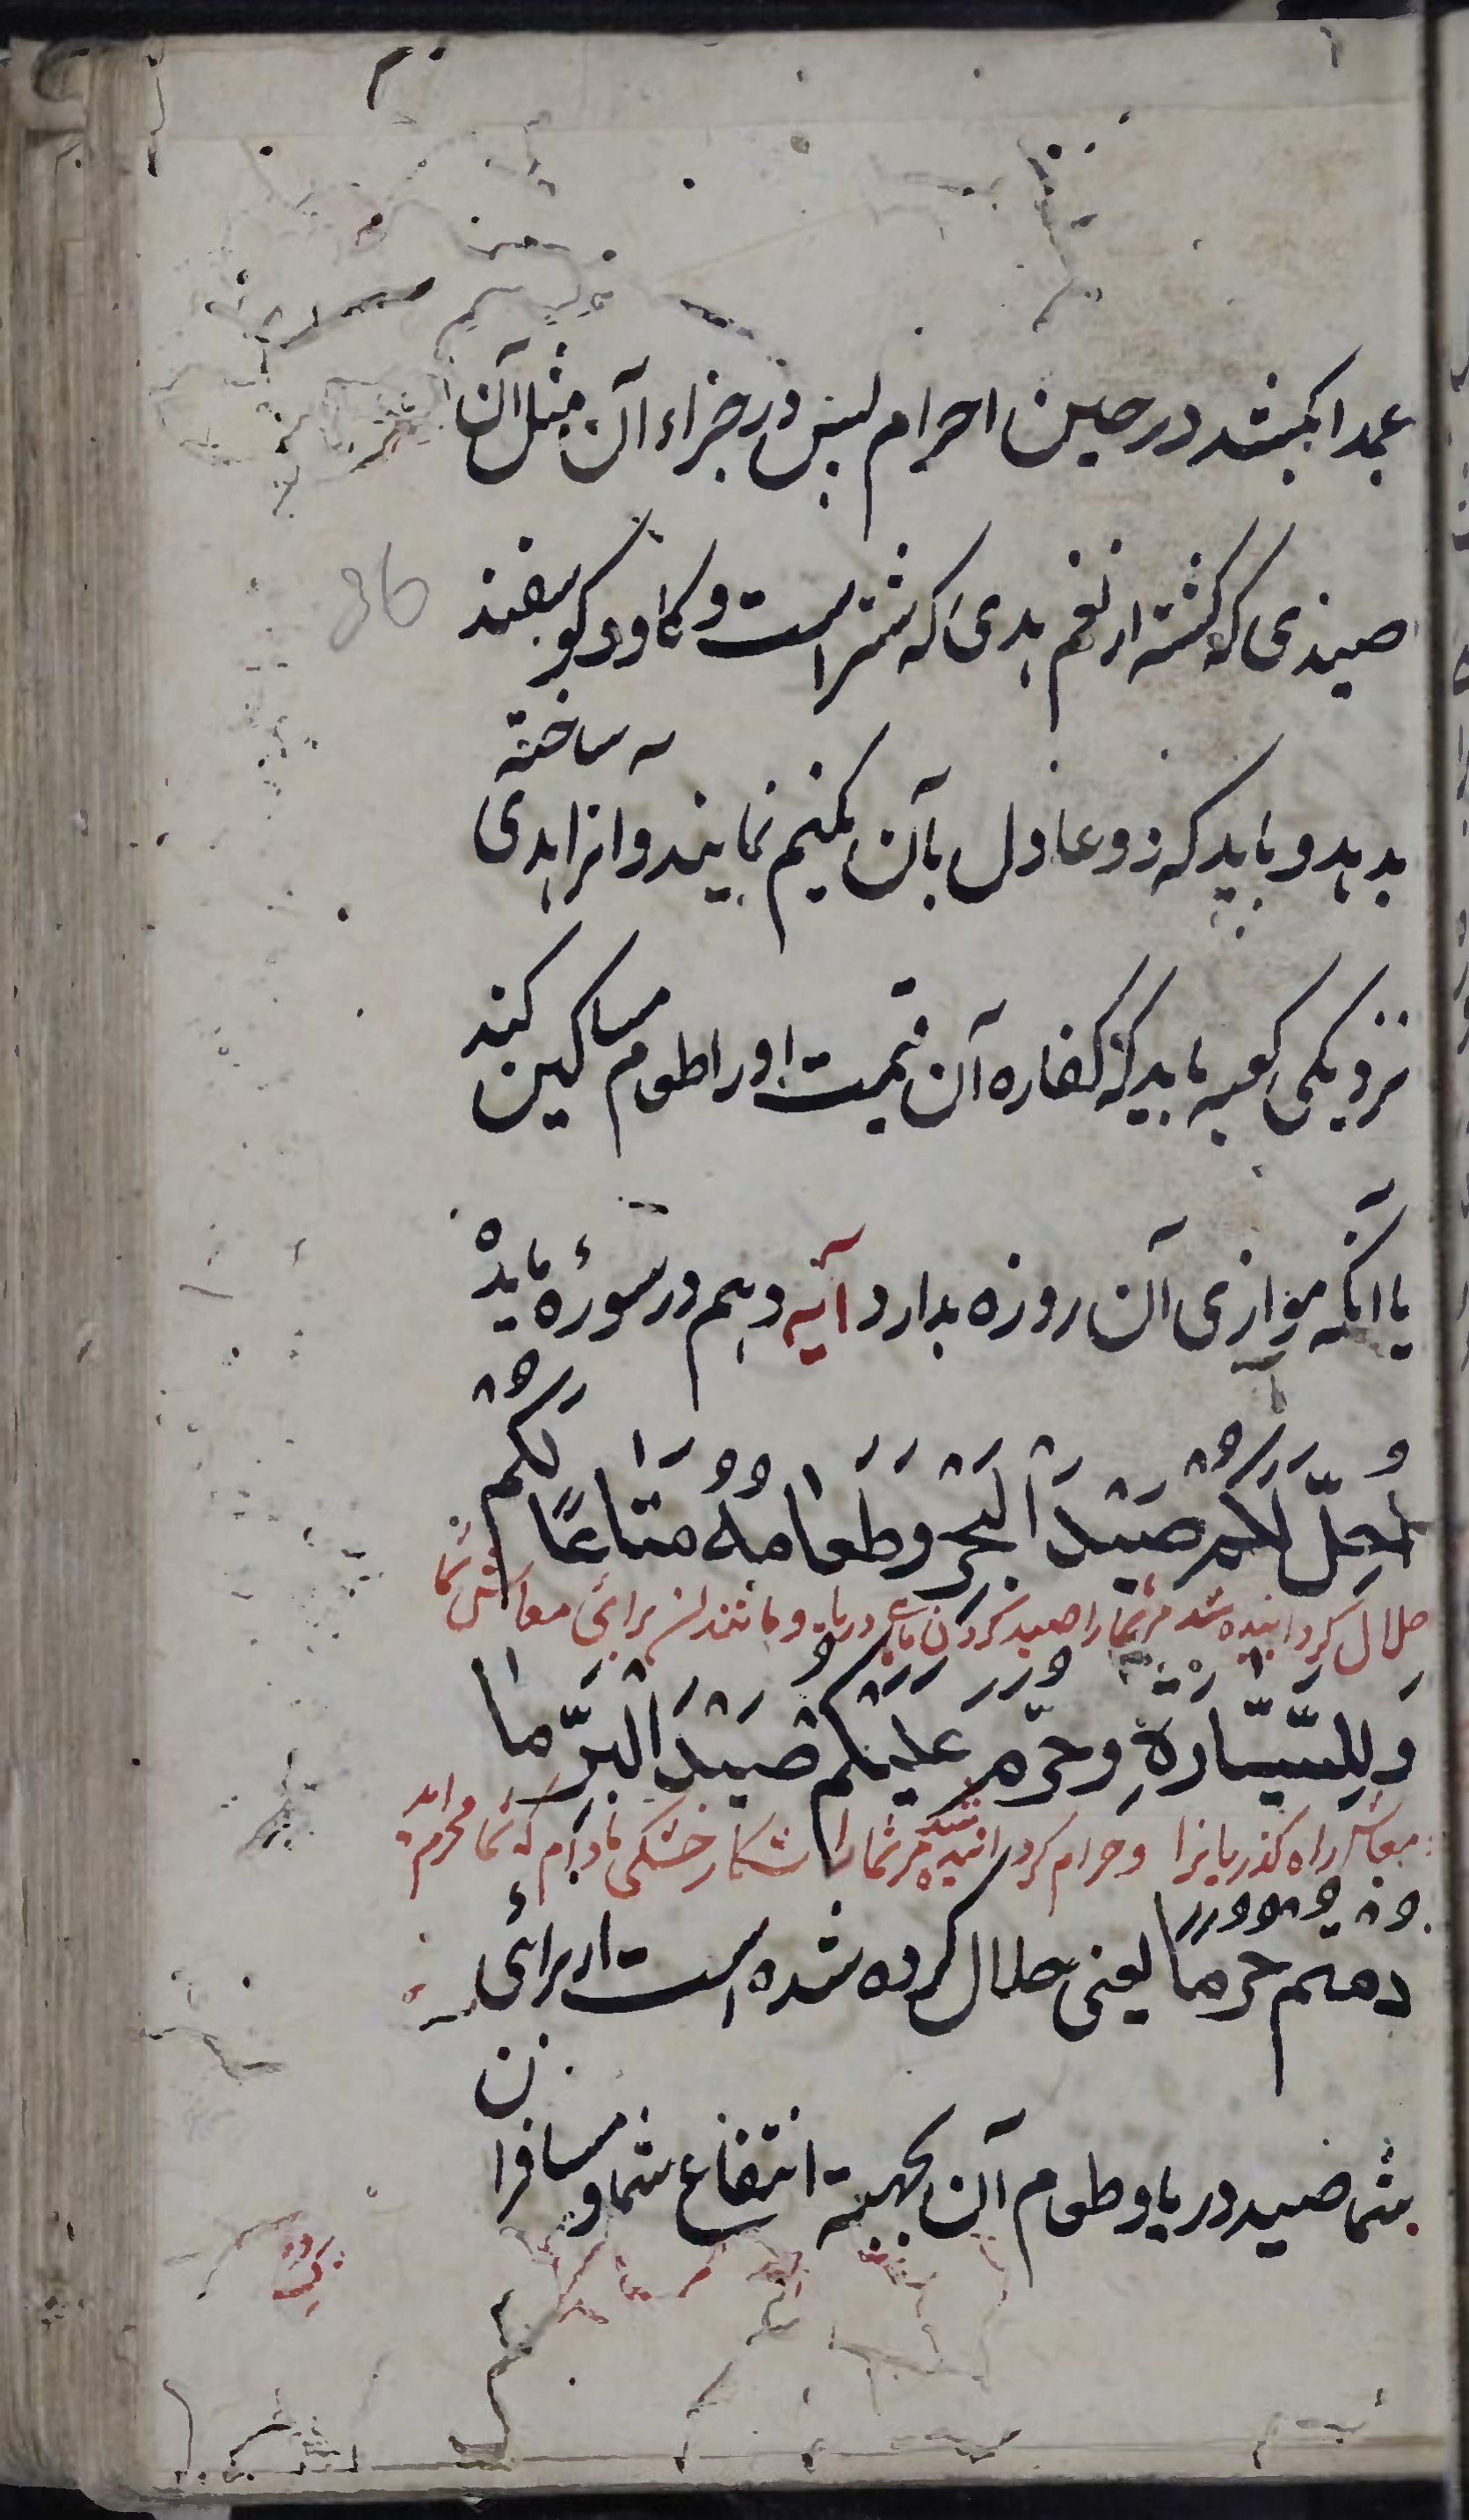 عمدا بکشد در حین احرام پس در جزاء آن مثل آن
صیدی که کشته از نعم بدهی که شتر است و کاو و کوسفند
بدهد و باید که دو عادل بآن حکم نمایند و انرا هدی ساخته
نزدیکی کعبه باید که کفاره آن قیمت او را طعام مساکین کند
یا آنکه موازی آن روزه بدارد آیه دهم در سورۀ مایده
اُحِلَّ لَکُمْ صَیْدُ الْبَحْرِ وَطَعَامُهُ مَتَاعًا لَکُمْ
حلال کردانیده شد مر شما را صید کردن ماهی دریا و مانند ان برای معاش شما
وَلِلسَّیَّارَةِ وَحُرِّمَ عَلَیْکُمْ صَیْدُ الْبَرِّ مَا
معاش راه کذریانرا و حرام کردانیده شد مر شما را شکار خشکی مادام که شما محرم اید
دُمْتُمْ حُرُمًا یعنی حلال کرده شده است از برائ
شما صید دریا و طعام آن بجهة انتفاع شما و مسافران
36